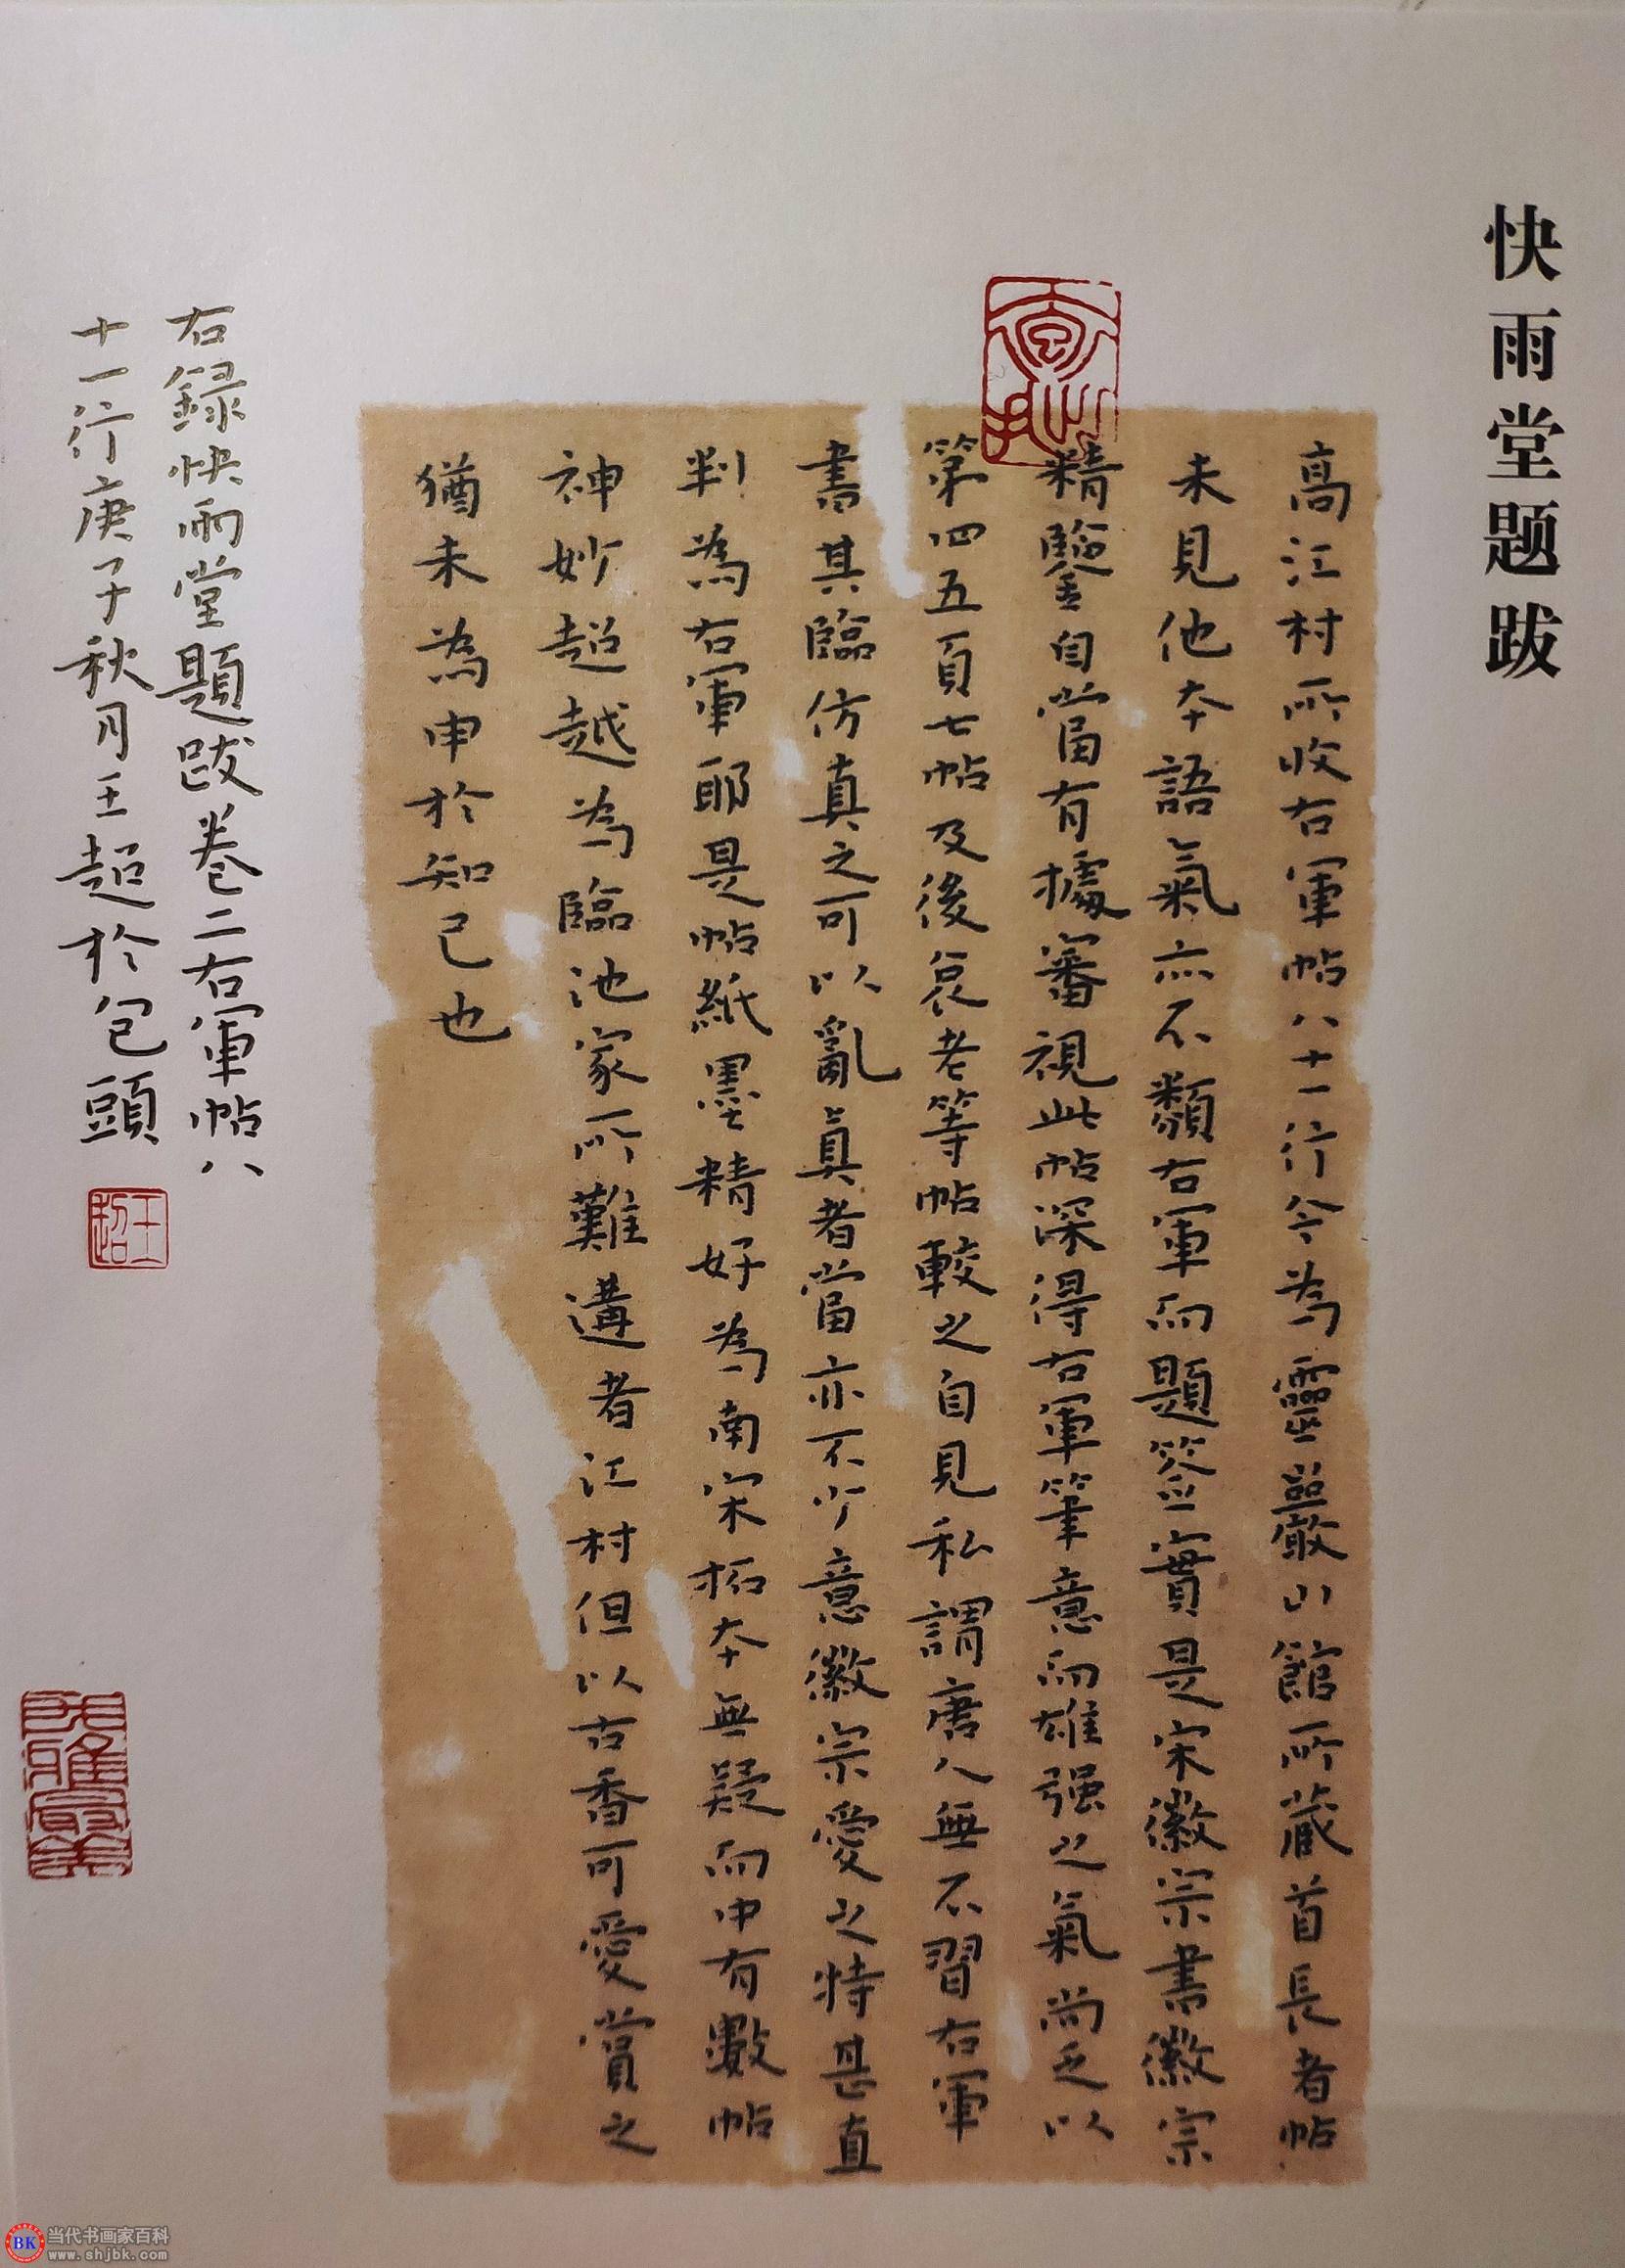 快雨堂题跋
高江村所收右軍帖八十一行今為靈巖山館所藏首長者帖
未見他本語氣亦不類右軍而題签實是宋徽宗書徽宗
精鑒自當有據審視此帖深得右軍筆意而雄强之氣尚乏以
第四五頁七帖及後哀老等帖較之自見私謂唐人無不習右軍
書其臨仿真之可以亂真者當亦不少意徽宗愛之特甚直
判為右軍耶是帖紙墨精好為南宋拓本無疑而中有數帖
神妙超越為臨池家所難遘者江村但以古香可愛賞之
猶未為申於知己也
右録快雨堂題跋卷二右軍帖八
十一行庚子秋月王超於包頭
王超
当代书画家百科
www.shjbk.com
BK